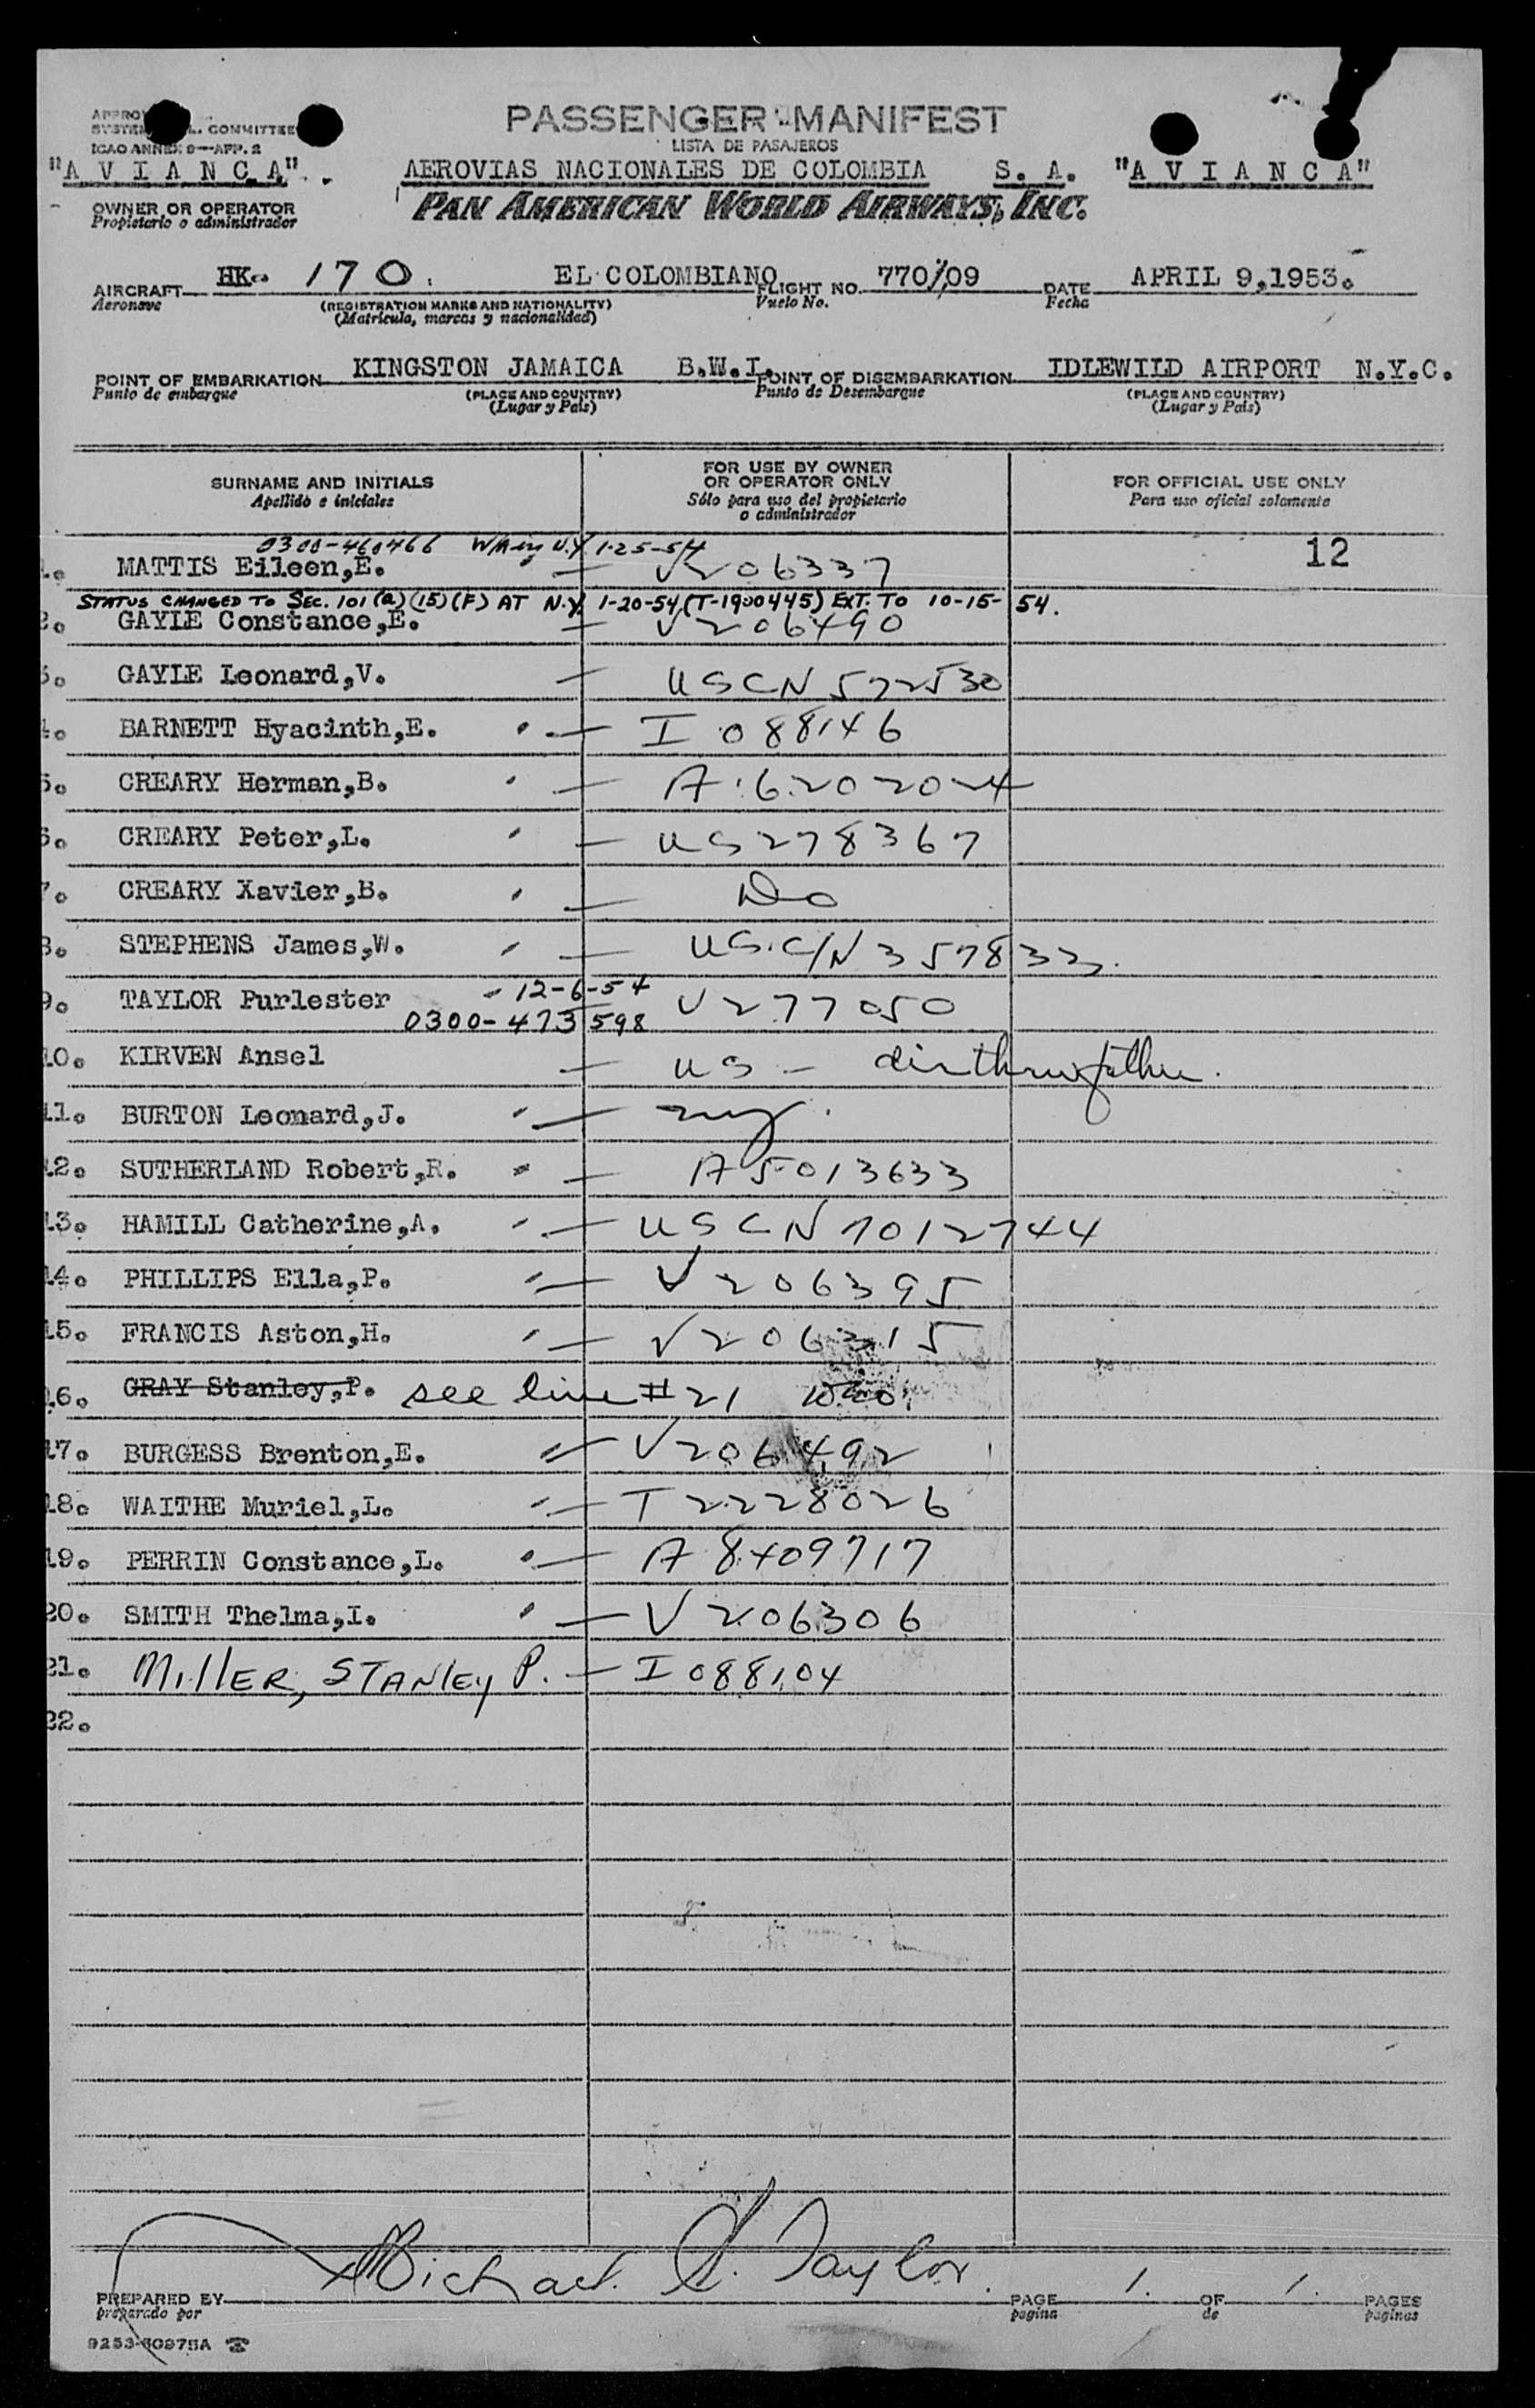 PASSENGER MANIFEST
LISTA DE PASAJEROS
COMMITTEE
ICAO ANNEX 9—APP. 2
"A V I A N C A" AEROVIAS NACIONALES DE COLOMBIA S. A. "A V I A N C A"
OWNER OR OPERATOR PAN AMERICAN WORLD AIRWAYS, INC.
Propietario o administrador
AIRCRAFT HK- 170. EL COLOMBIANO FLIGHT NO. 770/09 DATE APRIL 9,1953.
Aeronave (REGISTRATION MARKS AND NATIONALITY) Vuelo No. Fecha
(Matrícula, marcas y nacionalidad)
POINT OF EMBARKATION KINGSTON JAMAICA B.W.I. POINT OF DISEMBARKATION IDLEWILD AIRPORT N.Y.C.
Punto de embarque (PLACE AND COUNTRY) Punto de Desembarque (PLACE AND COUNTRY)
(Lugar y País) (Lugar y País)
SURNAME AND INITIALS FOR USE BY OWNER OR OPERATOR ONLY FOR OFFICIAL USE ONLY
Apellido e iniciales Sólo para uso del propietario o administrador Para uso oficial solamente
0300-460466 N.Y. 1-25-54
1. MATTIS Eileen,E. — V206337 12
STATUS CHANGED TO SEC. 101 (a) (15) (F) AT N.Y. 1-20-54 (T-1900445) EXT. TO 10-15-54.
2. GAYLE Constance,E. — V206490
3. GAYLE Leonard,V. — USCN 572530
4. BARNETT Hyacinth,E. — I 088146
5. CREARY Herman,B. — A 6202024
6. CREARY Peter,L. — US278367
7. CREARY Xavier,B. — Do
8. STEPHENS James,W. — US.C/N 357833.
9. TAYLOR Purlester - 12-6-54 V277050
0300-473598
10. KIRVEN Ansel — US — father.
11. BURTON Leonard,J. —
12. SUTHERLAND Robert,R. — A5013633
13. HAMILL Catherine,A. — USCN 1012744
14. PHILLIPS Ella,P. — V206395
15. FRANCIS Aston,H. — V206315
16. GRAY Stanley,P. see line #21
17. BURGESS Brenton,E. — V206492
18. WAITHE Muriel,L. — T2228026
19. PERRIN Constance,L. — A 8409717
20. SMITH Thelma,I. — V206306
21. MillER, STANlEy P. — I088104
22.
PREPARED BY Michael Taylor. PAGE 1. OF 1. PAGES
preparado por pagina de paginas